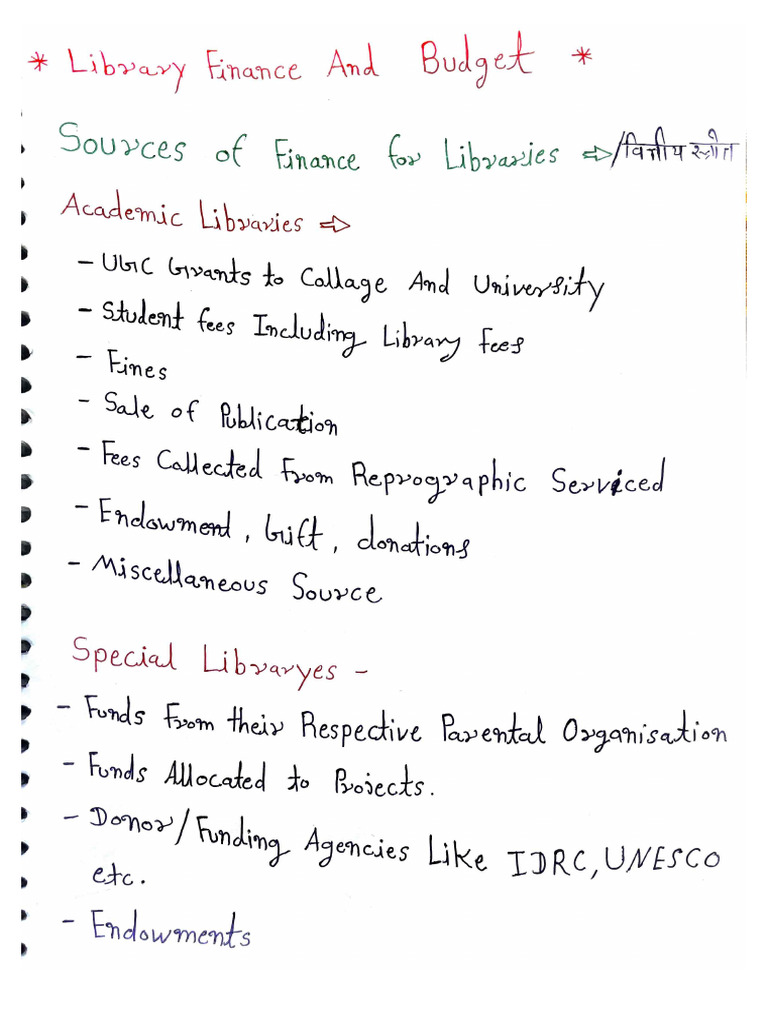 * Library Finance And Budget *
Sources of Finance for Libraries ⇒/वित्तीय स्त्रोत
Academic Libraries ⇒
- UGC Grants to Collage And University
- Student fees Including Library fees
- Fines
- Sale of Publication
- Fees Collected From Reprographic Serviced
- Endowment, Gift, donations
- Miscellaneous Source
Special Libraryes -
- Funds From their Respective Parental Organisation
- Funds Allocated to Projects.
- Donor/Funding Agencies Like IDRC, UNESCO
etc.
- Endowments